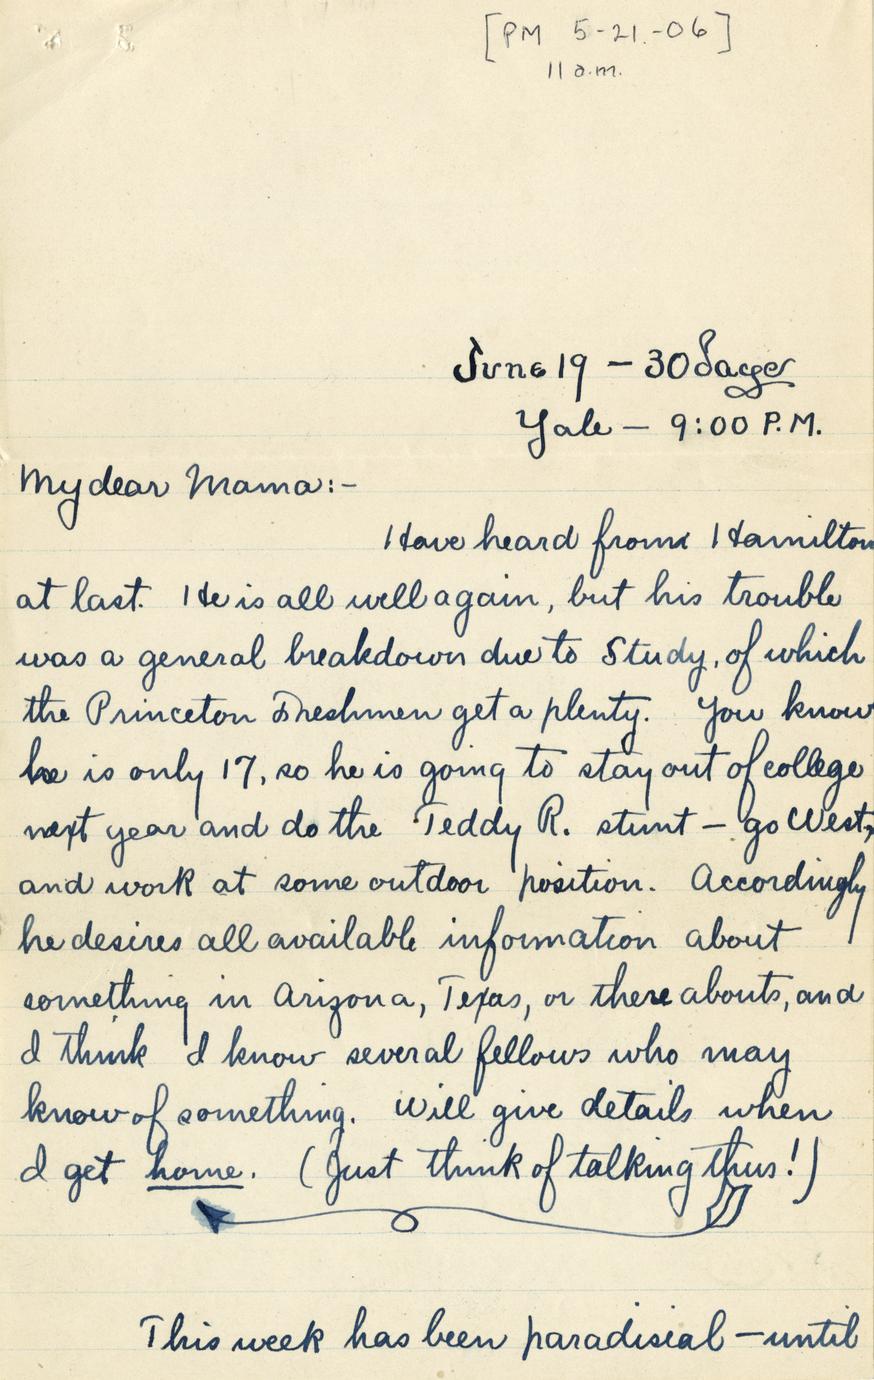 [PM 5-21-06]
11 a.m.
June 19 – 30 Days
Yale – 9:00 P.M.
My dear Mama:-
Have heard from Hamilton
at last. He is all well again, but his trouble
was a general breakdown due to Study, of which
the Princeton Freshmen get a plenty. You know
he is only 17, so he is going to stay out of college
next year and do the Teddy R. stunt – go West,
and work at some outdoor position. Accordingly
he desires all available information about
something in Arizona, Texas, or there abouts, and
I think I know several fellows who may
know of something. Will give details when
I get home. (Just think of talking thus!)
This week has been paradisial – until